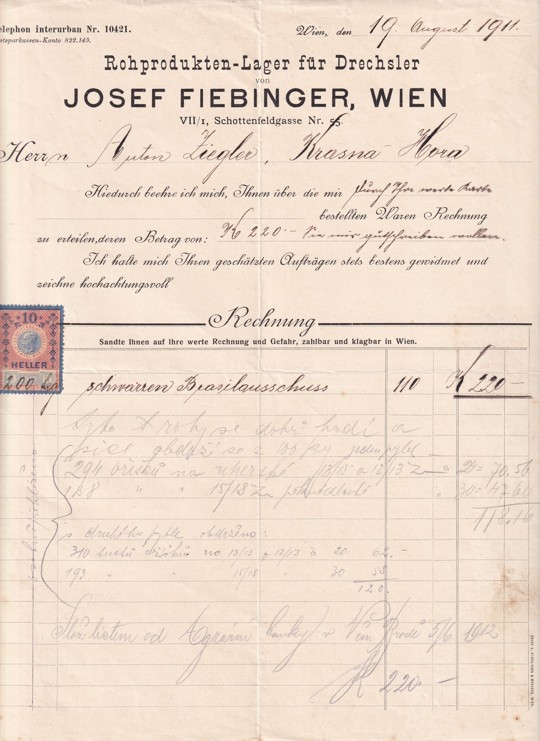 elephon interurban Nr. 10421.
stsparkassen-Konto 822.149.
Wien, den 19. August 1911.
Rohprodukten-Lager für Drechsler
von
JOSEF FIEBINGER, WIEN
VII/1, Schottenfeldgasse Nr. 55.
Herrn Anton Ziegler, Krasna Hora
Hiedurch beehre ich mich, Ihnen über die mir durch Ihre werte Karte
bestellten Waren Rechnung
zu erteilen, deren Betrag von: K 220.- Sie mir gutschreiben wollen.
Ich halte mich Ihren geschätzten Aufträgen stets bestens gewidmet und
zeichne hochachtungsvoll
Rechnung
Sandte Ihnen auf Ihre werte Rechnung und Gefahr, zahlbar und klagbar in Wien.
10
HELLER
200 kg schwarzen Brasilausschuss 110 K 220.-
dobře hodí a
294 oříšků na 13/15 a 12/13 24 = 70.56
15/18 30 = 47.60
118.16
z druhého pytle obdrženo:
310 na 13/15 a 12/13 à 20 62.-
193 " 15/18 " 30 58
120.-
od Agrární banky v 5/6 1912
K 220.-